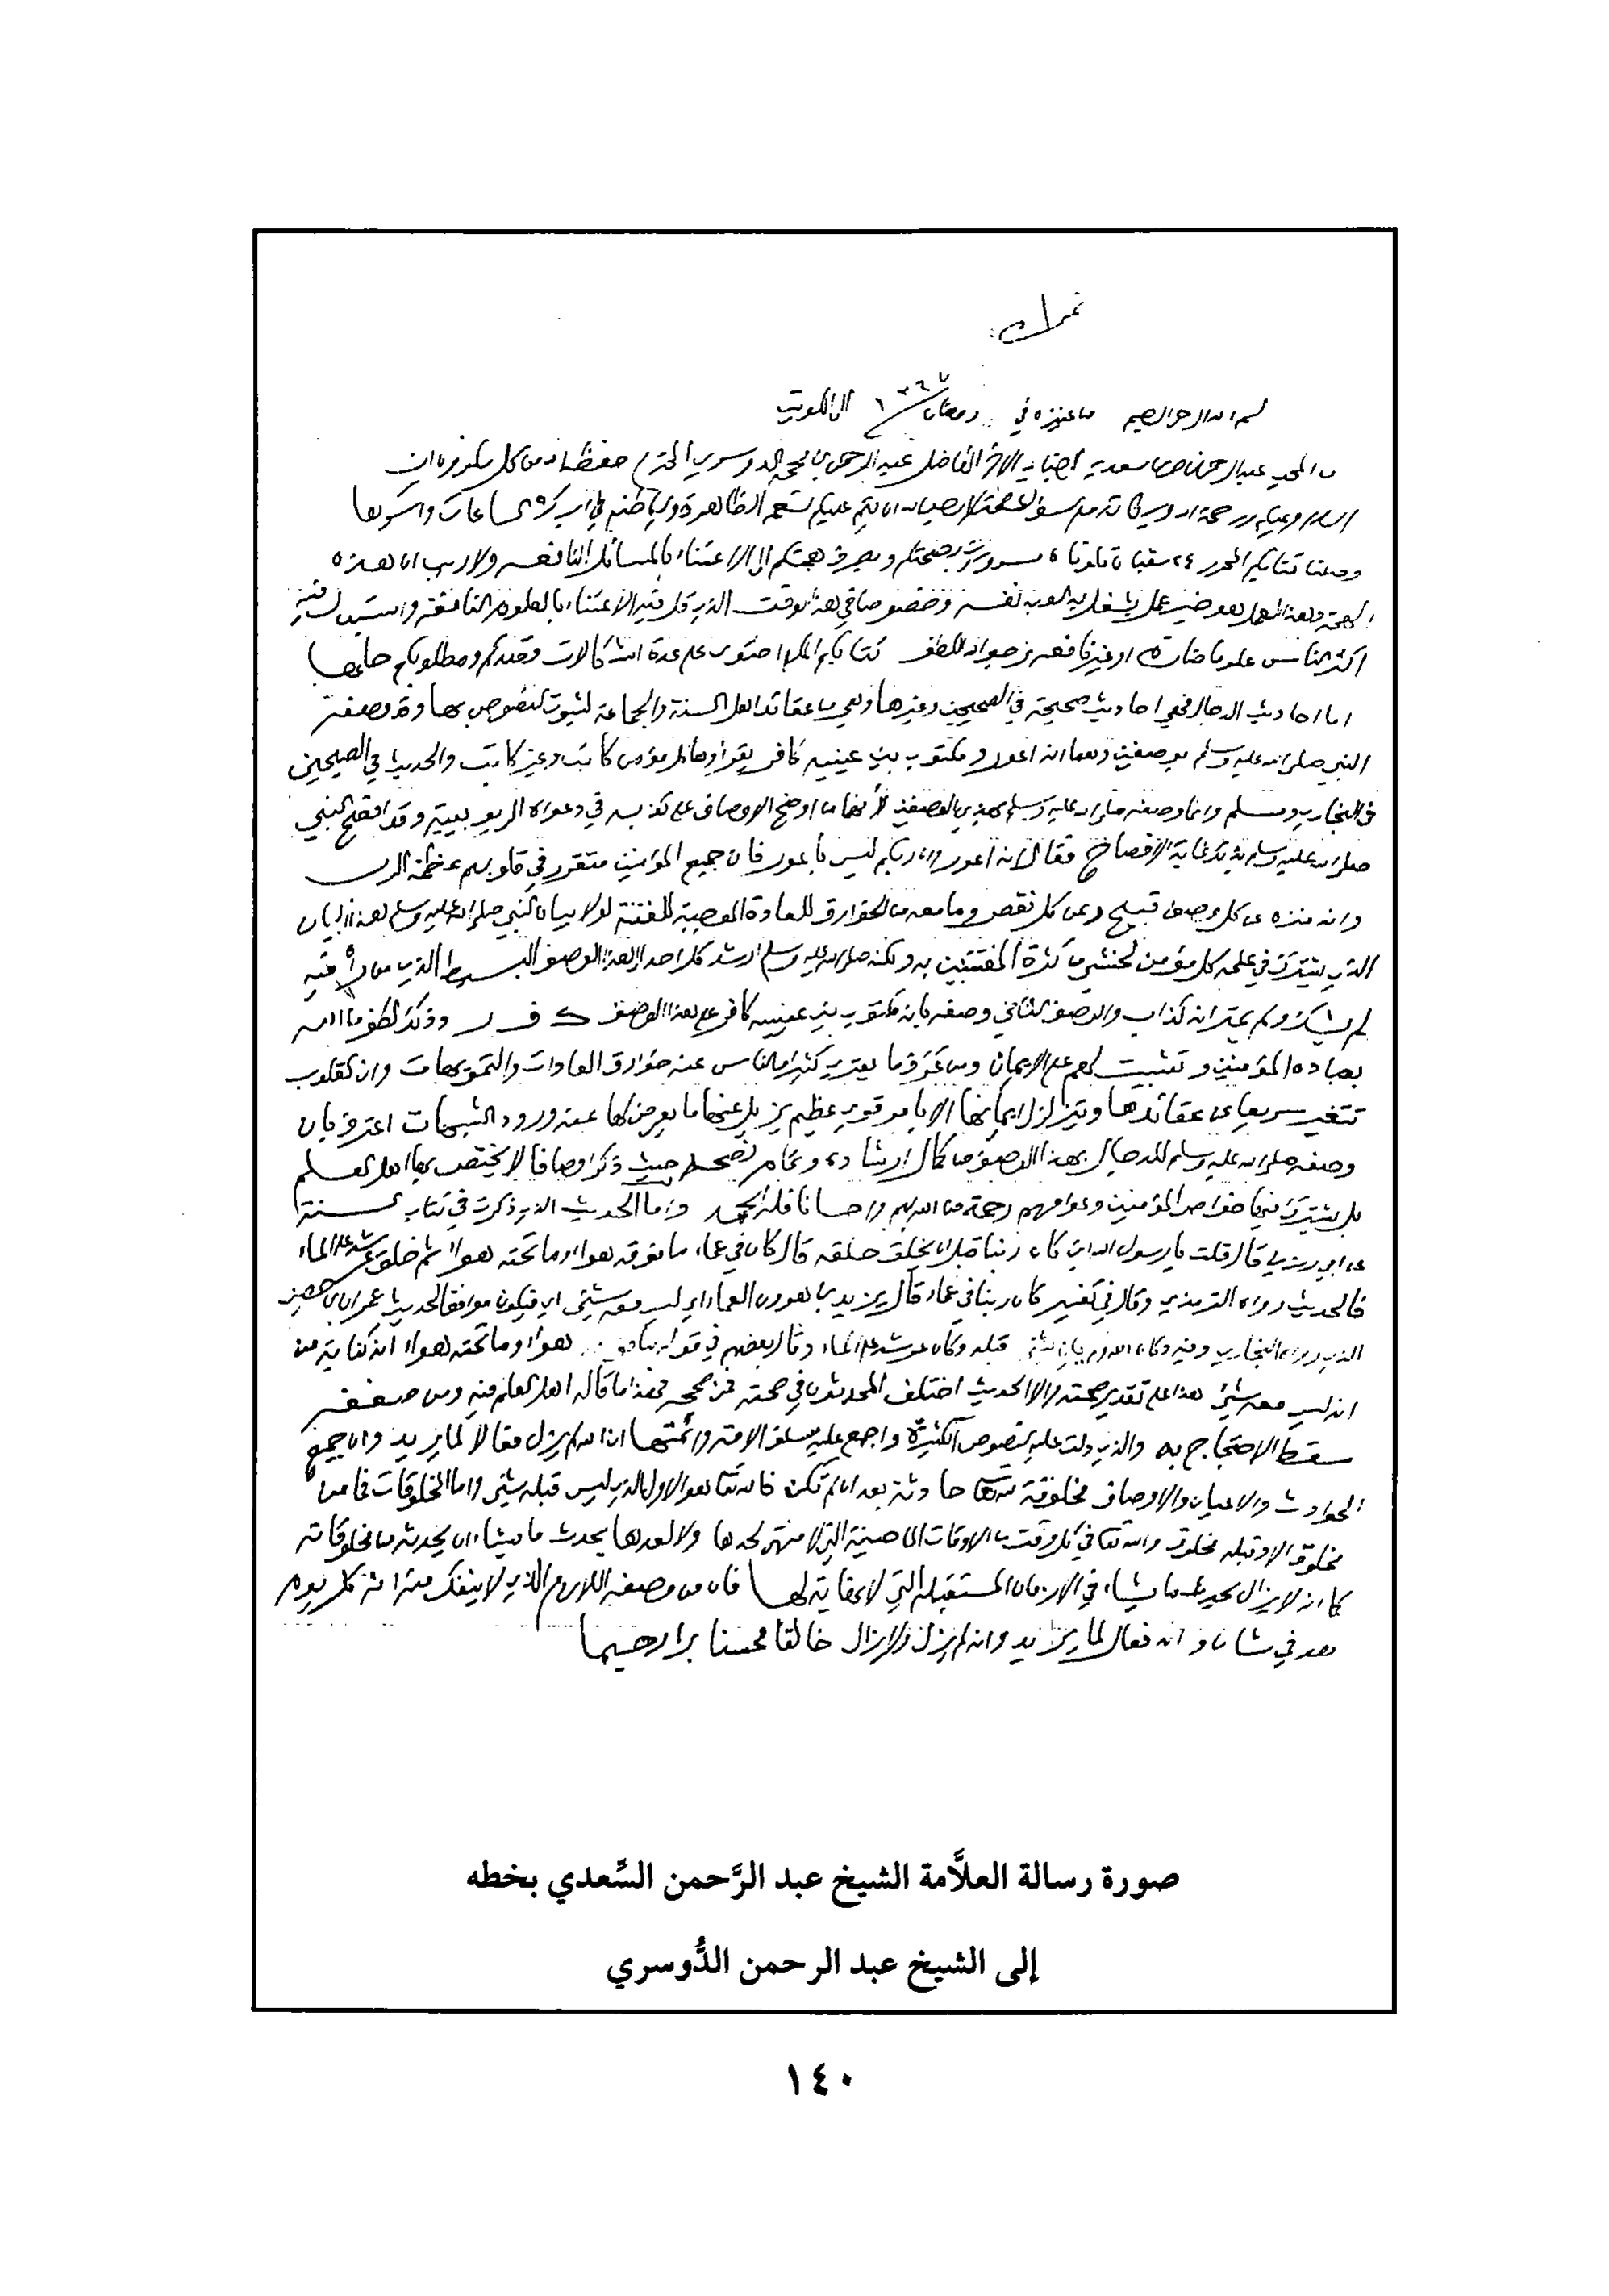 بسم الله الرحمن الرحيم من عنيزه في رمضان ١٣٦٧ الى الكويت
من المحب عبد الرحمن ناصر سعدي لجناب الاخ الفاضل عبد الرحمن بن محمد الدوسري المحترم حفظه الله من كل مكروه امين
السلام وعليكم ورحمة الله وبركاته مع السؤال عن صحتكم لا زلتم بصحة ان يتم عليكم نعمه الظاهرة والباطنه في
وصلنا كتابكم المحرر ٢٤ شعبان تلوناه مسرورا بصحتكم وبصرف همتكم الى الاعتناء بالمسائل النافعه ولا ريب ان هذه
الهمة وهذا العمل هو خير عمل يشغل به العبد نفسه وخصوصا في هذا الوقت الذي قل فيه الاعتناء بالعلوم النافعة واستبدل فيه
اكثر الناس علوما ضارة او غير نافعه نرجو الله اللطف كتابكم المكرم احتوى على عدة اشكالات وقصدكم ومطلوبكم حلها
اما احاديث الدجال فهي احاديث صحيحة في الصحيحين وغيرها وهي من عقائد اهل السنة والجماعة لثبوت النصوص بها وقد وصفه
النبي صلى الله عليه وسلم بوصفين وهما انه اعور ومكتوب بين عينيه كافر يقرأوها كل مؤمن كاتب وغير كاتب والحديث في الصحيحين
في البخاري ومسلم وانما وصفه صلى الله عليه وسلم بهذين الوصفين لأنهما من اوضح الاوصاف على كذبه في دعواه الربوبية وقد افصح النبي
صلى الله عليه وسلم بذلك غاية الافصاح فقال انه اعور وان ربكم ليس بأعور فان جميع المؤمنين متقرر في قلوبهم عظمة الرب
وانه منزه عن كل وصف قبيح وعن كل نقص وما معه من الخوارق للعادة الموجبة للفتنة لولا بيان النبي صلى الله عليه وسلم هذا البيان
الذي يشترك في علمه كل مؤمن لخشي من كثرة المفتتنين به ولكنه صلى الله عليه وسلم ارشد كل احد الى هذا الوصف البسيط الذي من رأه فيه
لم يشك ولم يمتر انه كذاب والوصف الثاني وصفه بانه مكتوب بين عينيه كافر على هذا الوصف ك ف ر وذلك لطف من الله
بعباده المؤمنين وتثبيت لهم على الايمان ومن عرف ما يعتري كثيرا من الناس عند خوارق العادات والتمويهات وان القلوب
تتغير سريعا عن عقائدها ويتزلزل ايمانها الا بأمر قوي عظيم يزيل عنها ما يعرض لها عند ورود الشبهات اعترف بان
وصفه صلى الله عليه وسلم للدجال بهذا الوصف من كمال ارشاده وتمام نصحه حيث ذكر اوصافا لا يختص بها اهل العلم
بل يشترك فيها خواص المؤمنين وعوامهم رحمة من الله بهم واحسانا فلله الحمد واما الحديث الذي ذكرت في كتاب السنة
عن ابي رزين قال قلت يا رسول الله اين كان ربنا قبل ان يخلق خلقه قال كان في عماء ما فوقه هواء وما تحته هواء ثم خلق عرشه على الماء
فالحديث رواه الترمذي وقال في تفسير كان ربنا في عماء قال يزيد بن هرون العماء اي ليس معه شيئ اي فيكون موافقا لحديث عمران بن حصين
الذي رواه البخاري وفيه وكان الله ولم يكن شيئ قبله وكان عرشه على الماء وقال بعضهم في قوله هواء وما تحته هواء انه كناية عن
انه ليس معه شيئ هذا على تقدير صحته والا الحديث اختلف المحدثون في صحته فمن صححه فهذا ما قاله اهل العلم فيه ومن ضعفه
سقط الاحتجاج به والذي دلت عليه النصوص الكثيرة واجمع عليه سلف الامة وأئمتها ان الله لم يزل فعالا لما يريد وان جميع
الحوادث والاعيان والاوصاف مخلوقة لله حادثة بعد ان لم تكن فالله تعالى هو الاول الذي ليس قبله شيئ واما المخلوقات فما من
مخلوق الا وقبله مخلوق والله تعالى في كل وقت من الاوقات الماضية التي لا منتهى لحدها ولا لعدها يحدث ما يشاء ان يحدثه من مخلوقاته
كما انه لا يزال يحدث ما يشاء في الازمان المستقبله التي لا نهاية لها فان من وصفه اللازم الذي لا ينفك عنه انه كل يوم
هو في شان وانه فعال لما يريد وانه لم يزل ولا يزال خالقا محسنا برا رحيما
صورة رسالة العلاَّمة الشيخ عبد الرَّحمن السِّعدي بخطه
إلى الشيخ عبد الرحمن الدُّوسري
١٤٠